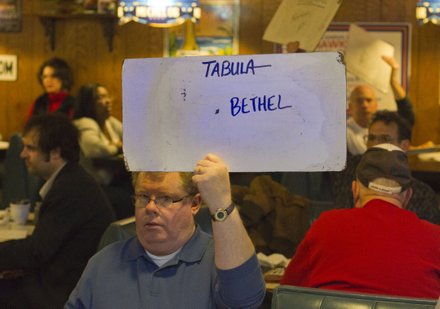 TABULA
BETHEL